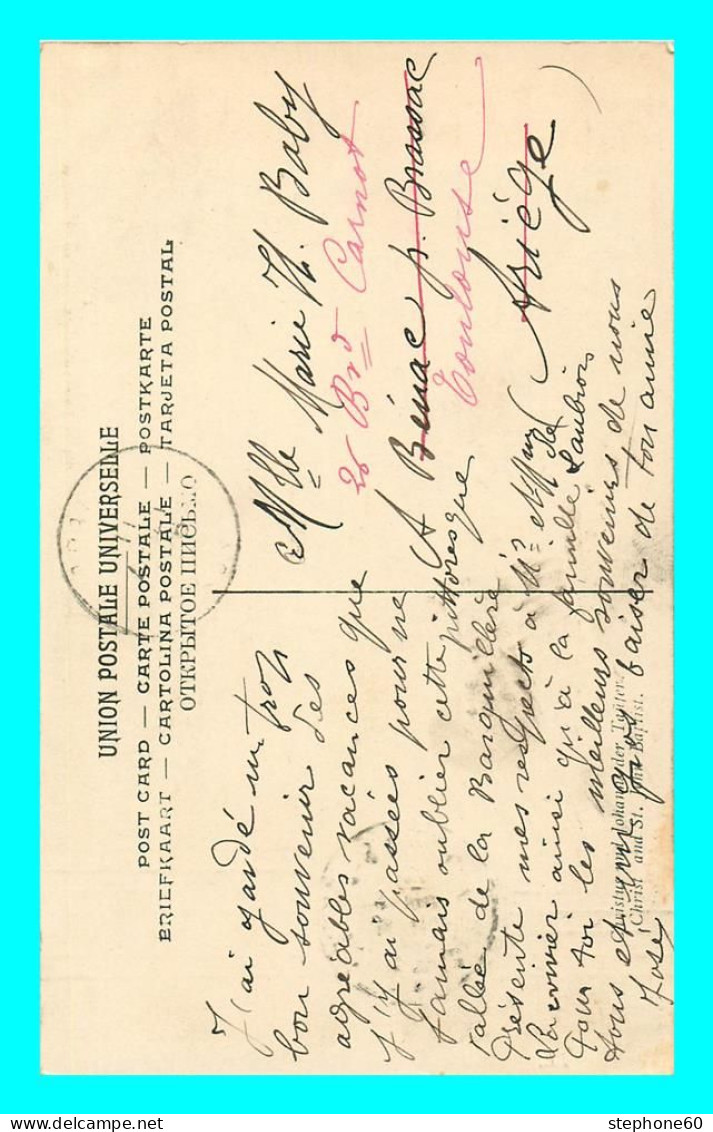 UNION POSTALE UNIVERSELLE
POST CARD — CARTE POSTALE — POSTKARTE
BRIEFKAART — CARTOLINA POSTALE — TARJETA POSTAL
ОТКРЫТОЕ ПИСЬМО
J'ai gardé un trop
bon souvenir des
agréables vacances que
j'y ai passées pour ne
jamais oublier cette pittoresque
vallée de la Barguillère
Présente mes respects à Mr et Mme
ainsi qu'à la famille Laubrois
Pour toi les meilleurs souvenirs de nous
tous et un gros baiser de ton amie
José
Mlle Marie Th. Baby
26 Brd Carnot
A Bénac p. Brassac
Toulouse
Ariége
Christus und Johannes der Täufer.
Christ and St. John Baptist.
stephone60